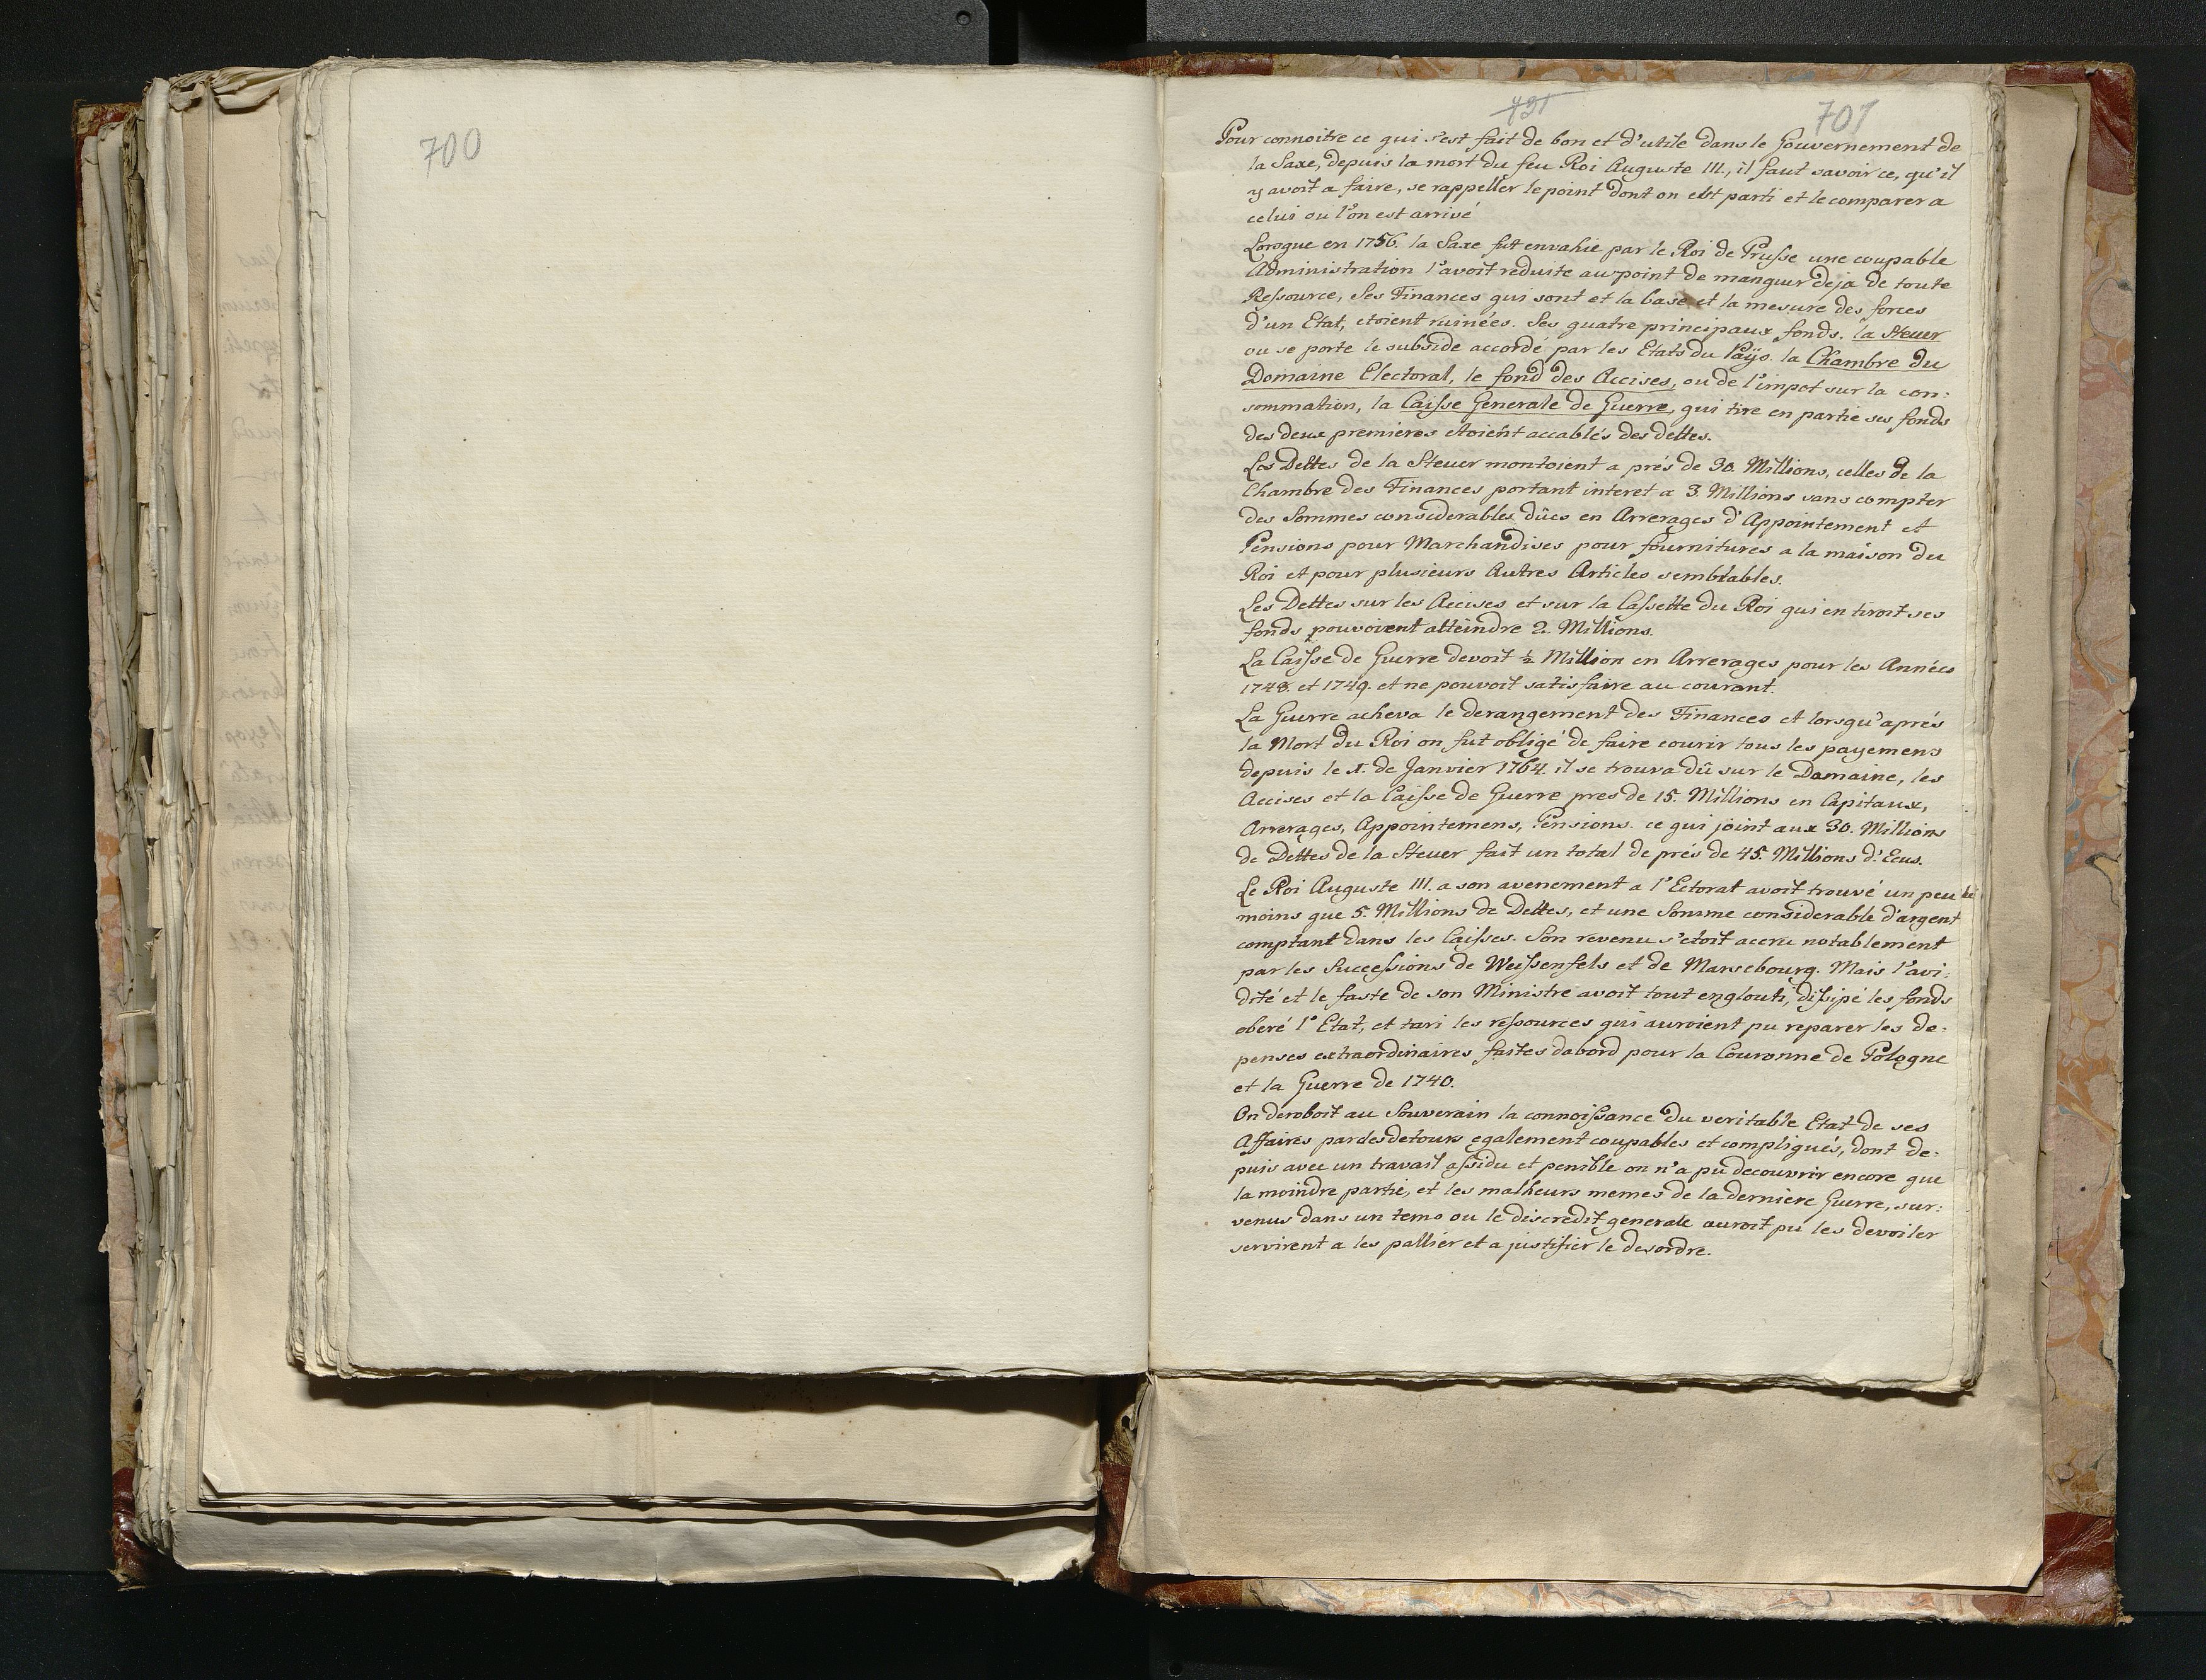 700
731
701
Pour connoitre ce qui s'est fait de bon et d'utile dans le Gouvernement de
la Saxe, depuis la mort du feu Roi Auguste III., il faut savoir ce, qu'il
y avoit a faire, se rappeller le point dont on est parti et le comparer a
celui ou l'on est arrivé
Lorsque en 1756. la Saxe fut envahie par le Roi de Prusse une coupable
Administration l'avoit reduite au point de manquer deja de toute
Ressource, Ses Finances qui sont et la base et la mesure des forces
d'un Etat, etoient ruinées. Ses quatre principaux fonds. la Steuer
ou se porte le subside accordé par les Etats du Païs. la Chambre du
Domaine Electoral, le fond des Accises, ou de l'impot sur la con:
sommation, la Caisse Generale de Guerre, qui tire en partie ses fonds
des deux premieres etoient accablés des dettes.
Les Dettes de la Steuer montoient a prés de 30. Millions, celles de la
Chambre des Finances portant interet a 3. Millions sans compter
des Sommes considerables dûes en Arrerages d'Appointement et
Pensions pour Marchandises pour fournitures a la maison du
Roi et pour plusieurs Autres Articles semblables.
Les Dettes sur les Accises et sur la Cassette du Roi qui en tiroit ses
fonds pouvoient atteindre 2. Millions.
La Caisse de Guerre devoit ½ Million en Arrerages pour les Années
1748. et 1749. et ne pouvoit satisfaire au courant.
La Guerre acheva le derangement des Finances et lorsqu'aprés
la Mort du Roi on fut obligé de faire courir tous les payemens
depuis le 1. de Janvier 1764. il se trouva dû sur le Domaine, les
Accises et la Caisse de Guerre pres de 15. Millions en Capitaux,
Arrerages, Appointemens, Pensions. ce qui joint aux 30. Millions
de Dettes de la Steuer fait un total de prés de 45. Millions d'Ecus.
Le Roi Auguste III. a son avenement a l'Ectorat avoit trouvé un peu
moins que 5. Millions de Dettes, et une Somme considerable d'argent
comptant dans les Caisses. Son revenu s'etoit accru notablement
par les Successions de Weissenfels et de Marsebourg. Mais l'avi:
dité et le faste de son Ministre avoit tout englouti, dissipé les fonds
oberé l'Etat, et tari les ressources qui auroient pu reparer les de:
penses extraordinaires faites dabord pour la Couronne de Pologne
et la Guerre de 1740.
On deroboit au Souverain la connoissance du veritable Etat de ses
Affaires par des detours egalement coupables et compliqués, dont de:
puis avec un travail assidu et penible on n'a pu decouvrir encore que
la moindre partie, et les malheurs memes de la derniere Guerre, sur:
venus dans un tems ou le discredit generale auroit pu les devoiler
servirent a les pallier et a justifier le desordre.